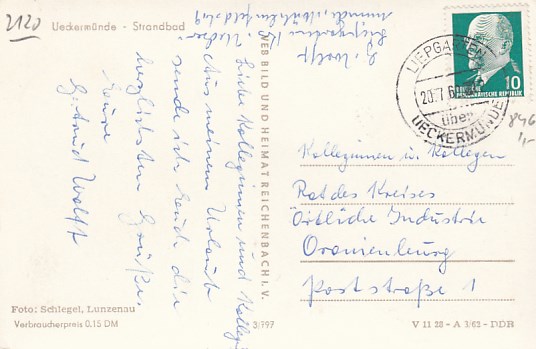 2120
Ueckermünde - Strandbad
G. Wolff
Liepgarten
Liebe Kolleginnen und Kollegen
Aus meinem Urlaub
sende ich Euch die
herzlichsten Grüße.
Eure
Gertrud Wolff
VEB BILD UND HEIMAT REICHENBACH I. V.
Foto: Schlegel, Lunzenau
Verbraucherpreis 0,15 DM
3/797
DEUTSCHE
DEMOKRATISCHE REPUBLIK
10
LIEPGARTEN
20.7.6
über
UECKERMÜNDE
846
1,-
Kolleginnen u. Kollegen
Rat des Kreises
Örtliche Industrie
Oranienburg
Poststraße 1
V 11 28 - A 1/62 - DDR